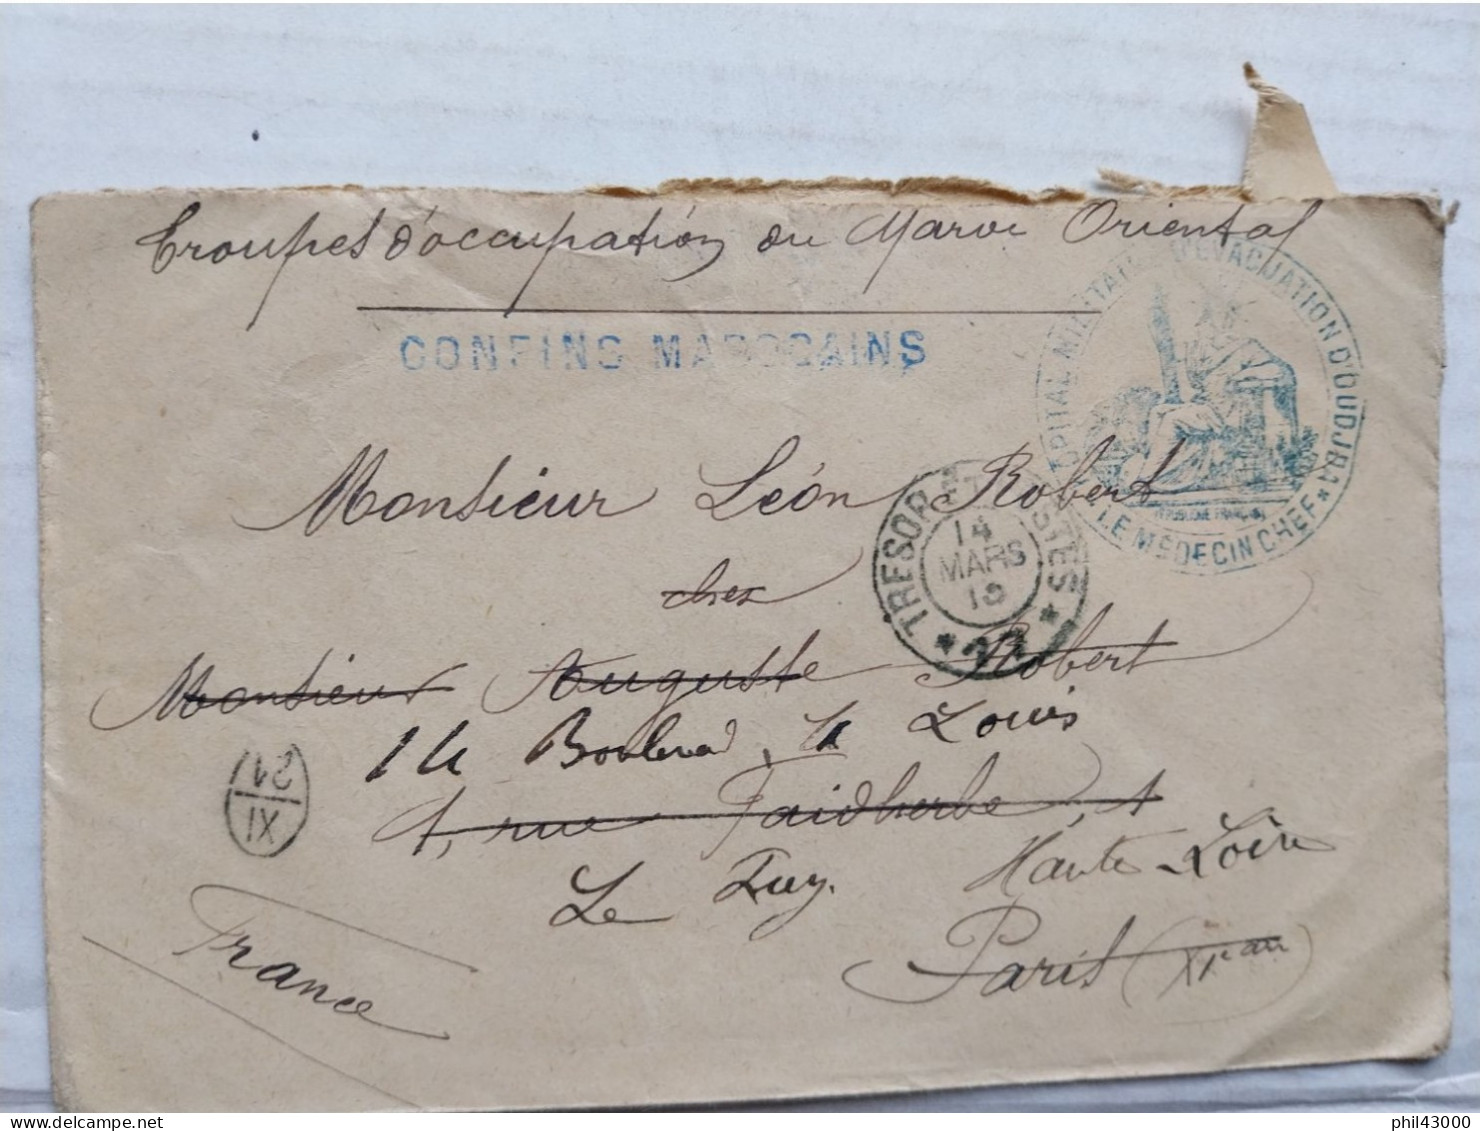 Troupes d'occupation du Maroc Oriental
CONFINS MAROCAINS
HOPITAL MILITAIRE D'EVACUATION D'OUDJDA
* LE MÉDECIN CHEF *
REPUBLIQUE FRANÇAISE
Monsieur Léon Robert
TRESOR ET POSTES
14
MARS
* *
chez
Monsieur Auguste Robert
14 Boulevard St Louis
1, rue Faidherbe, 1
XI
Le Puy. Haute Loire
Paris (XIe arr)
France
phil43000